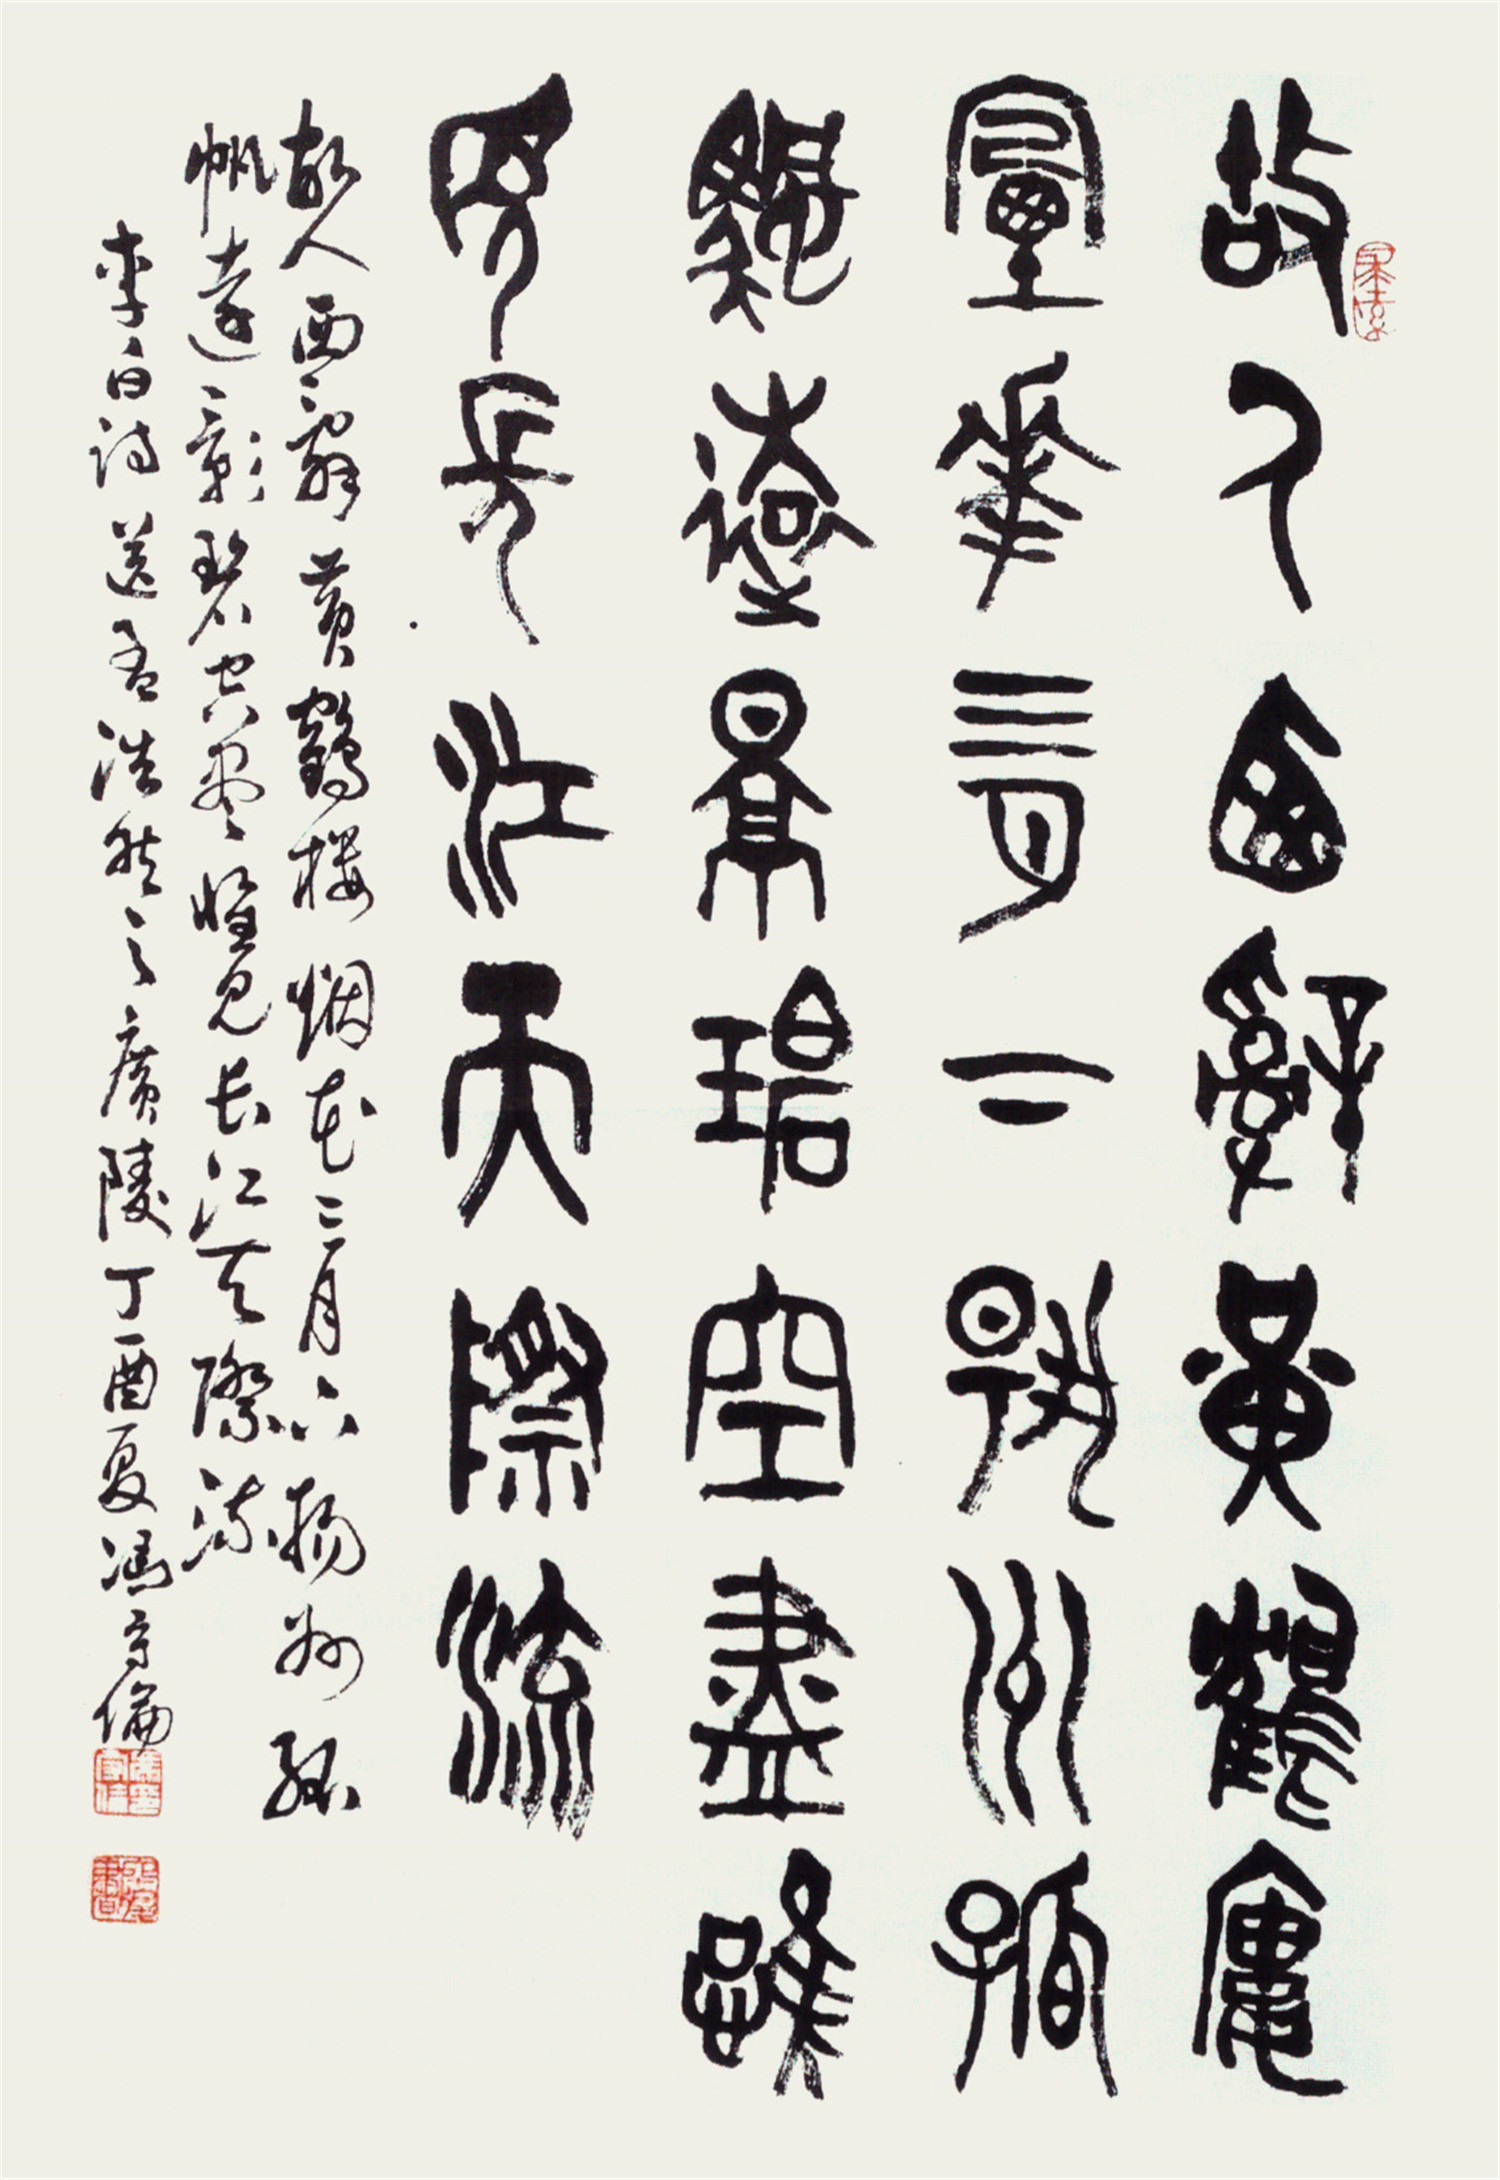 故人西辭黃鶴樓
煙華三月下揚州孤
颿遠景碧空盡唯
見長江天際流
故人西辭黃鶴楼烟花三月下揚州孤
帆遠影碧空盡惟見长江天際流
李白詩送孟浩然之廣陵丁酉夏馮守倫